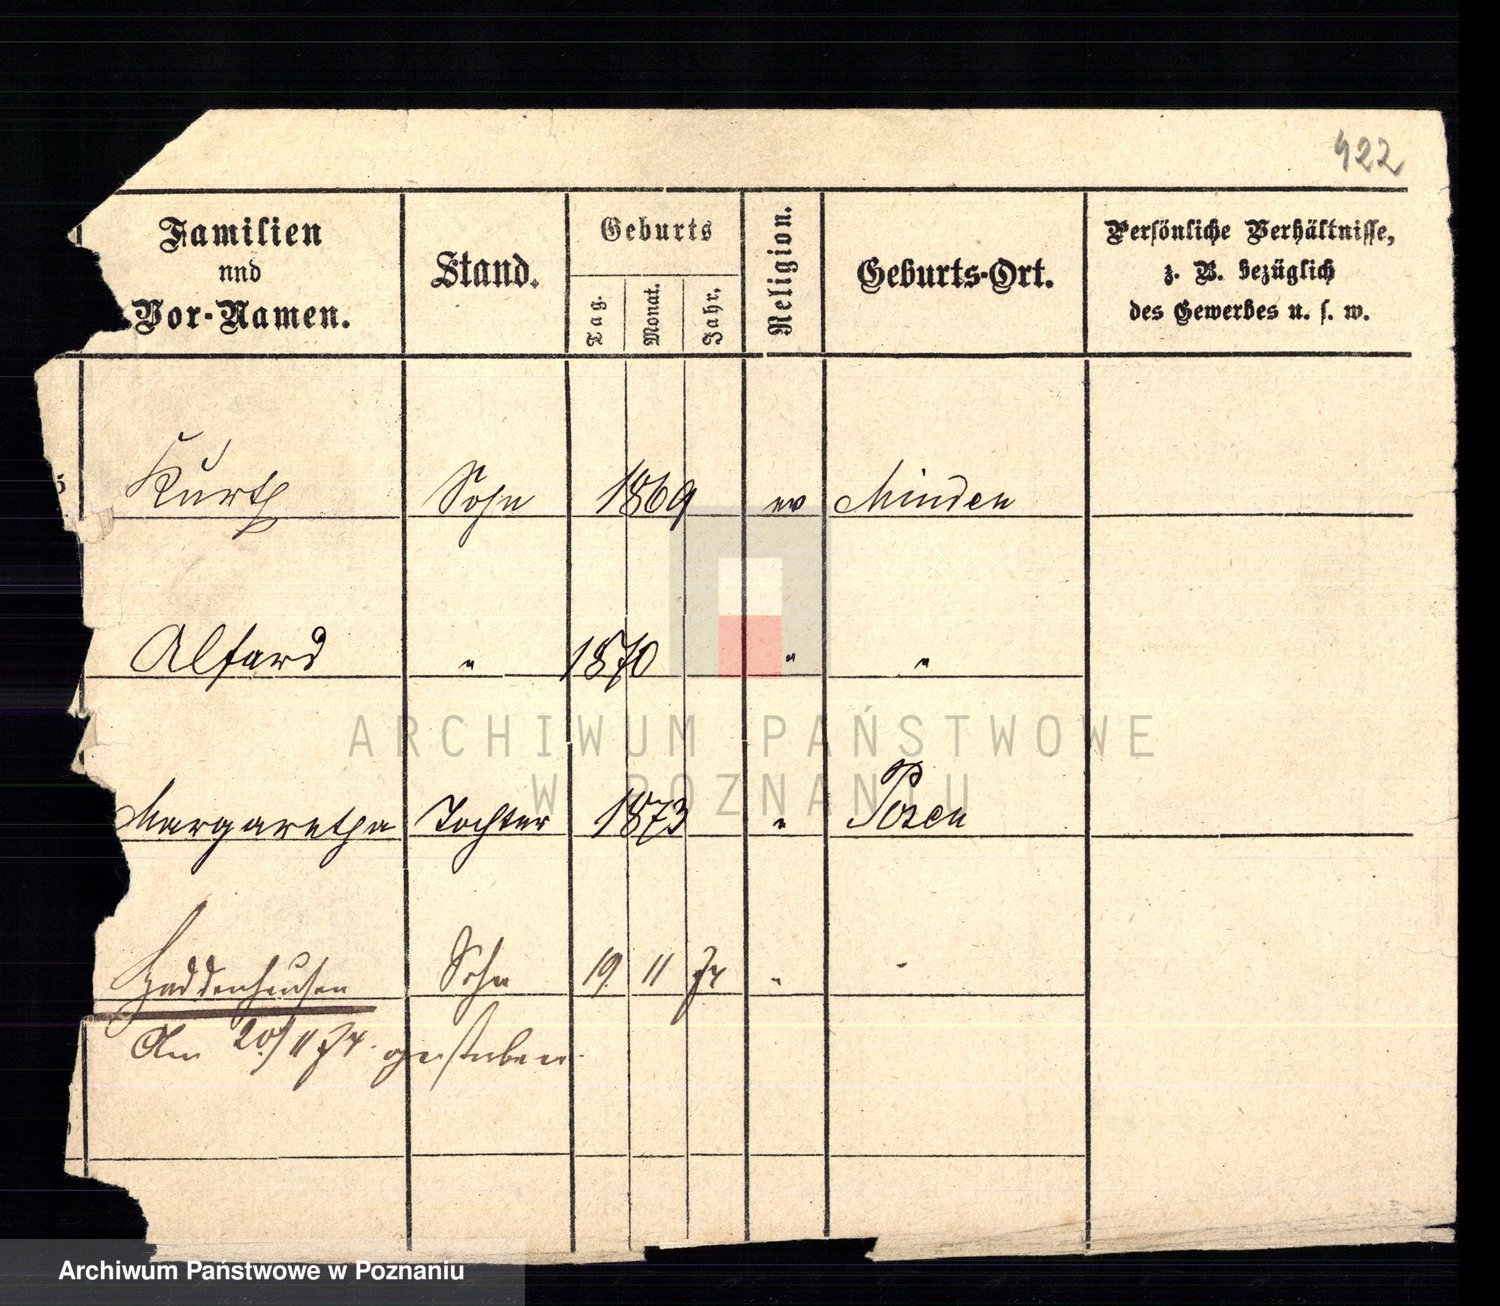 422
Familien
und
Vor-Namen.
Stand.
Geburts
Tag.
Monat.
Jahr.
Religion.
Geburts-Ort.
Persönliche Verhältnisse,
z. B. bezüglich
des Gewerbes u. s. w.
Kurth Sohn 1869 ev Minden
Alfard " 1870 " "
Margaretha Tochter 1873 " Posen
Haddenhausen Sohn 19. 11 74 " -
Am 20/11 74. gestorben.
ARCHIWUM PAŃSTWOWE
W POZNANIU
Archiwum Państwowe w Poznaniu